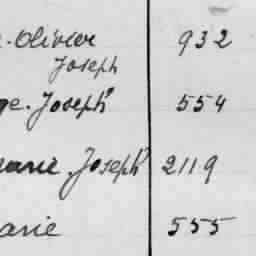 -Olivier 932
Joseph
ge. Joseph 554
marie Joseph 2119
arie 555